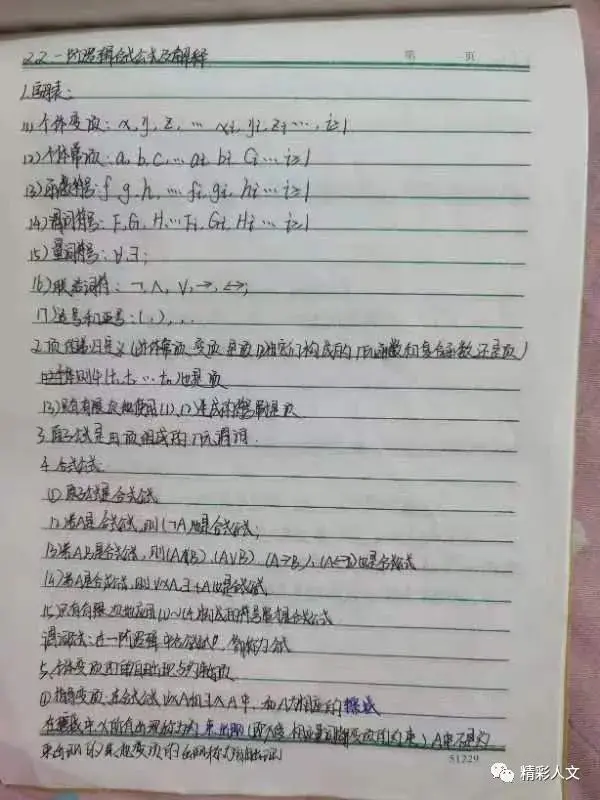 2.2 一阶逻辑合式公式及解释
第 页
1.字母表:
(1)个体变项: x, y, z, … xi, yi, zi …, i≥1
(2)个体常项: a, b, c, … ai bi Ci … i≥1
(3)函数符号: f g, h, … fi, gi, hi … i≥1
(4)谓词符号: F, G, H … Fi, Gi, Hi … i≥1
(5)量词符号: ∀, ∃;
(6)联结词符: ¬, ∧, ∨, →, ↔;
(7)逗号和括号: ( , ) , , .
2.项 递归定义 (1)个体常项 变项 是项 (2) 构成的 n元函数和复合函数 还是项)
则 也是项
(3)只有有限次地使用(1),(2)生成的符号串是项
3.原子公式是由项组成的n元谓词.
4.合式公式
① 原子公式是合式公式
(2)若A是合式公式,则(¬A)也是合式公式;
(3)若A,B是合式公式,则(A∧B),(A∨B),(A→B),(A↔B)也是合式公式
(4)若A是合式公式,则∀xA,∃xA也是合式公式
(5)只有有限次地应用(1)~(4)形成的符号串是合式公式
在一阶逻辑中 合式公式
5.个体变项的自由出现与约束出现
①指导变项:在合式公式∀xA和∃xA中, A为相应的辖域
在辖域中x所有出现称为约束出现 A中不是约
束出现的其他变项的出现称为自由出现
51229
精彩人文